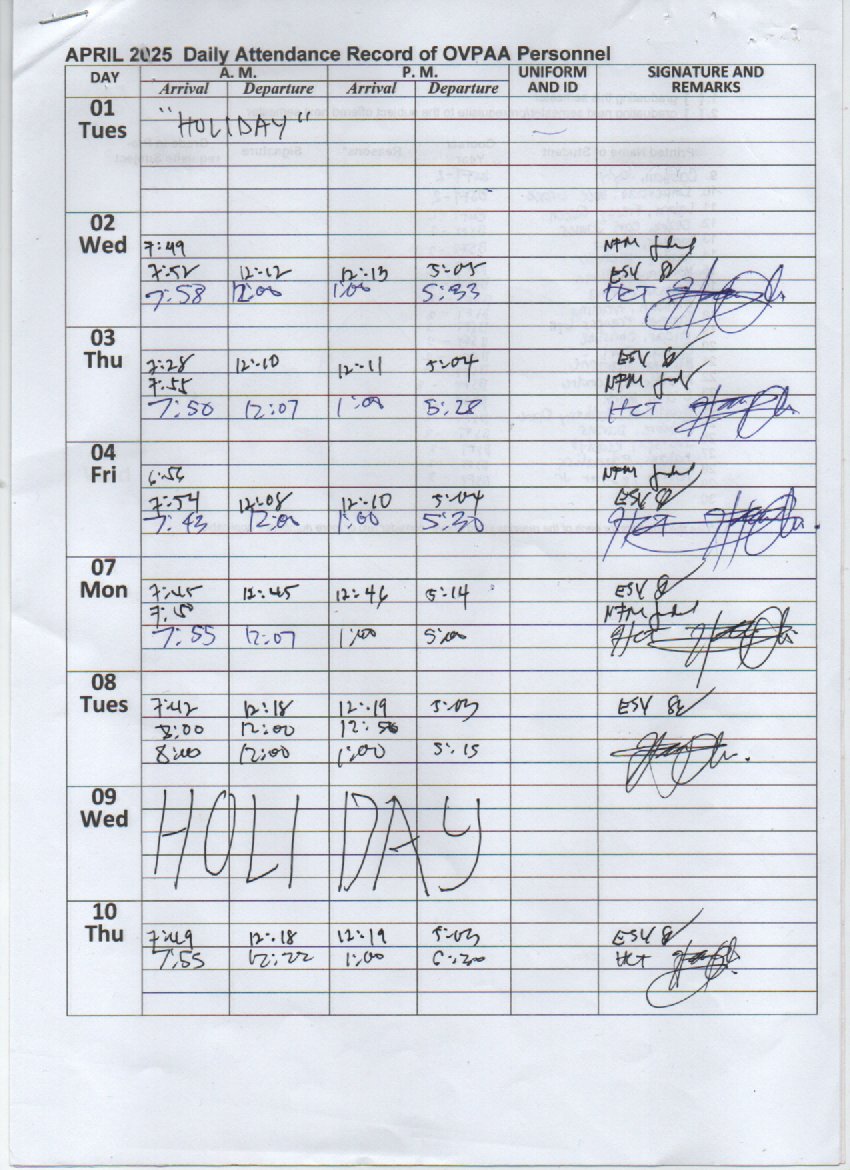 APRIL 2025 Daily Attendance Record of OVPAA Personnel
DAY A. M. P. M. UNIFORM AND ID SIGNATURE AND REMARKS
Arrival Departure Arrival Departure
01 Tues
"HOLIDAY"
02 Wed
7:49 NFM
7:52 12:12 12:13 5:05 ESV
7:58 12:00 1:00 5:33 HCT
03 Thu
7:28 12:10 12:11 5:04 ESV
7:55 NFM
7:50 12:07 1:00 5:28 HCT
04 Fri
6:56 NFM
7:54 12:08 12:10 5:04 ESV
7:43 12:00 1:00 5:30 HCT
07 Mon
7:45 12:45 12:46 5:14 ESV
7:50 NFM
7:55 12:07 1:00 5:00 HCT
08 Tues
7:42 12:18 12:19 5:03 ESV
8:00 12:00 12:50
8:00 12:00 1:00 5:15
09 Wed
HOLIDAY
10 Thu
7:49 12:18 12:19 5:03 ESV
7:55 12:22 1:00 6:20 HCT